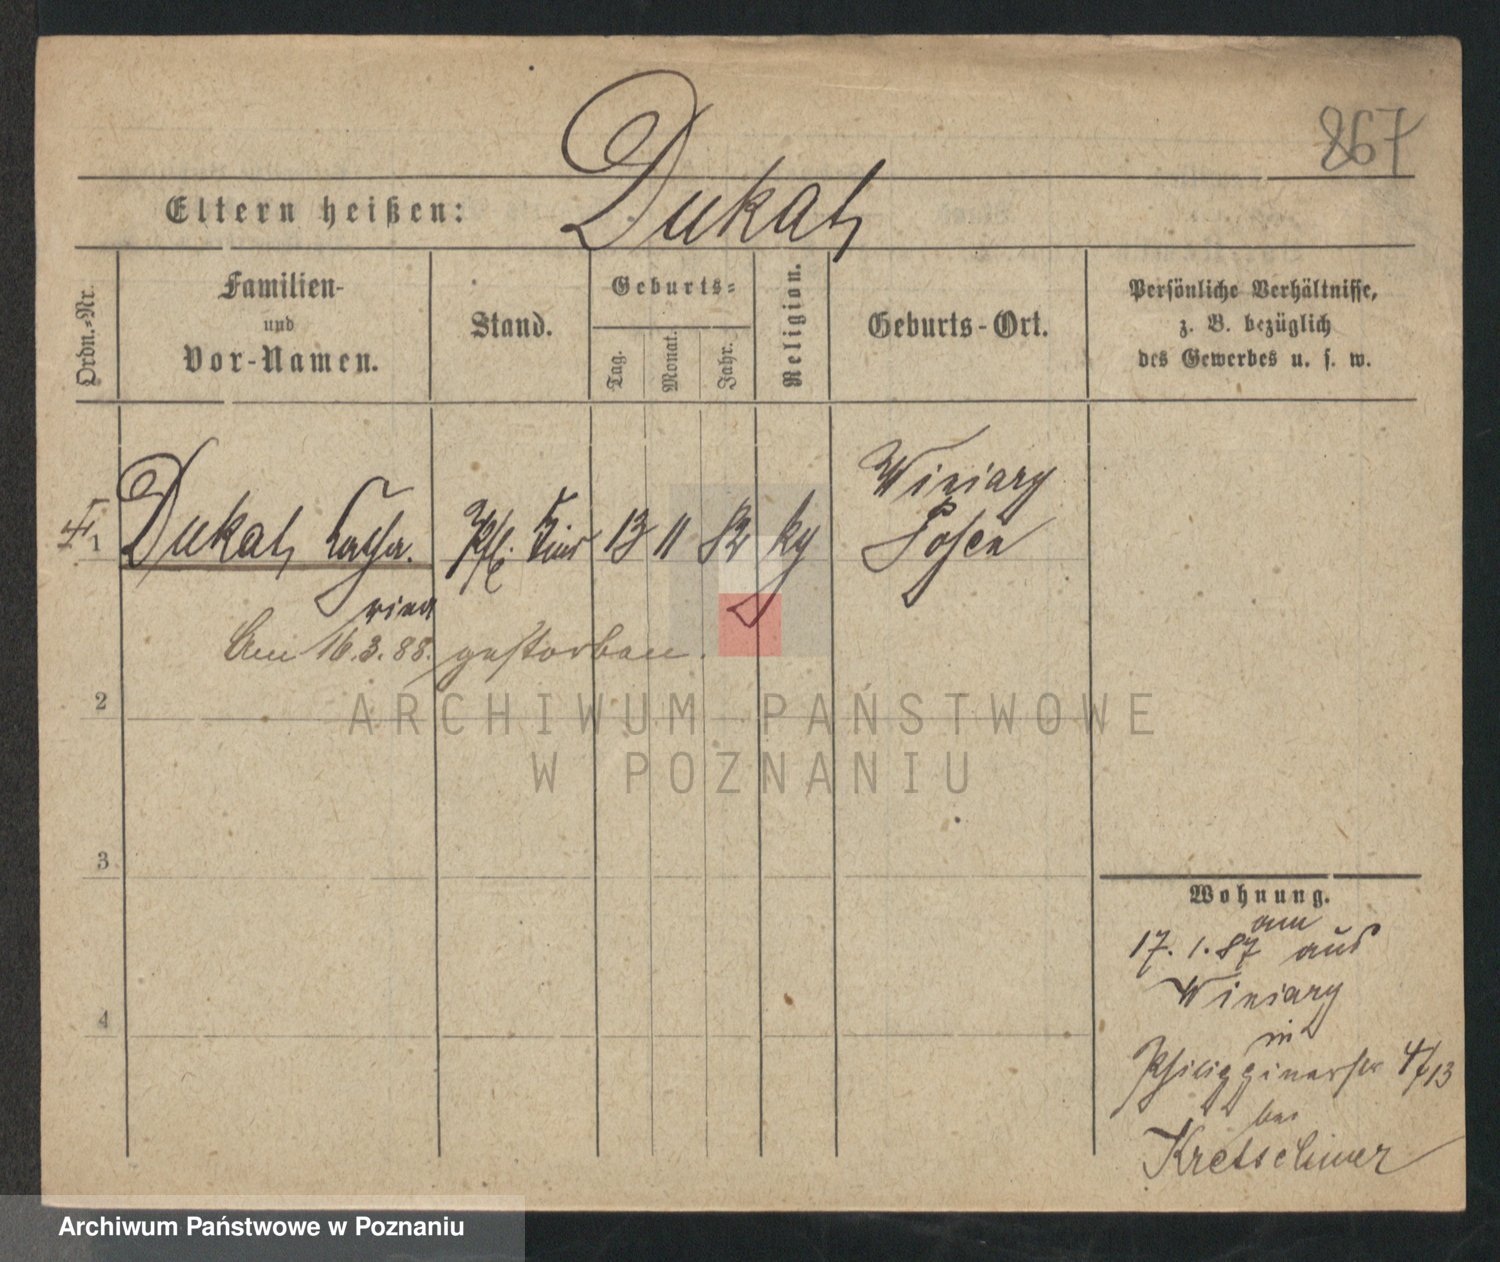 867
Eltern heißen: Dukat
Ordn.-Nr.
Familien-
und
Vor-Namen.
Stand.
Geburts-
Tag.
Monat.
Jahr.
Religion.
Geburts-Ort.
Persönliche Verhältnisse,
z. B. bezüglich
des Gewerbes u. s. w.
Winiary
1 Dukat, Catha- Pfl. Kind 13 11 82 Posen
rina
Am 16.3.88. gestorben.
2
ARCHIWUM PAŃSTWOWE
W POZNANIU
3
4
Wohnung.
am
17. 1. 87 aus
Winiary
in
4/13
bei
Kretschmer
Archiwum Państwowe w Poznaniu